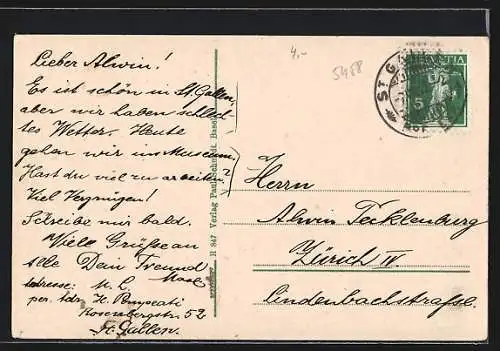 Lieber Alwin!
Es ist schön in St. Gallen,
aber wir haben schlech-
tes Wetter. Heute
gehen wir ins Museum.
Hast du viel zu arbeiten?
Viel Vergnügen!
Schreibe mir bald.
Viele Grüsse an
alle Dein Freund
Max
Adresse: M. L.
per. Adr. H.
Rosenbergstr. 52
St. Gallen.
4.-
5488
R 847 Verlag Paul Schmidt, Basel
ST. GALLEN
HELVETIA
5
Herrn
Alwin Tecklenburg
Zürich IV
Lindenbachstrasse.